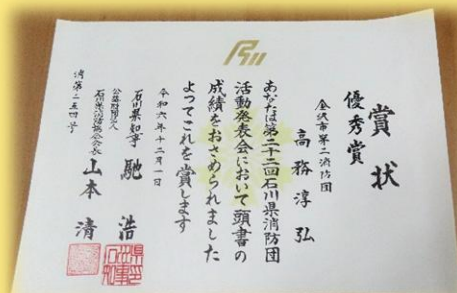 賞状
優秀賞
金沢市第二消防団
高務淳弘
あなたは第二十二回石川県消防団
活動発表会において頭書の
成績をおさめられました
よってこれを賞します
令和六年十二月一日
石川県知事 馳浩
公益財団法人
石川県消防協会会長 山本清
消第二五四号